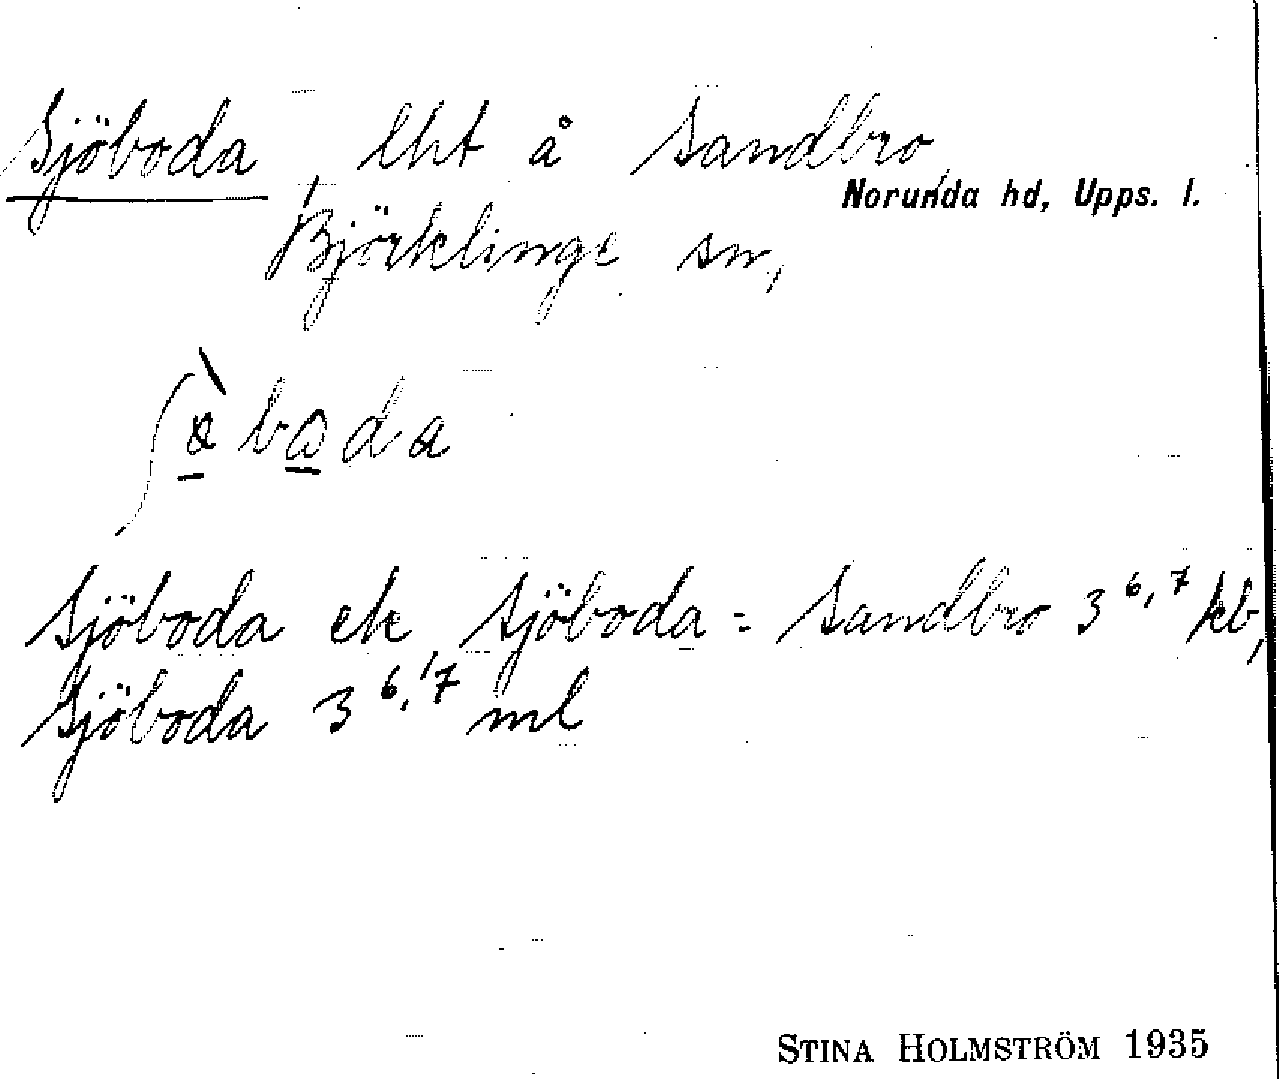 Sjöboda, lht å Sandbro,
Norunda hd, Upps. l.
Björklinge sn,
Sjöboda ek, Sjöboda = Sandbro 3 6,7 kb,
Sjöboda 3 6,7 ml
STINA HOLMSTRÖM 1935